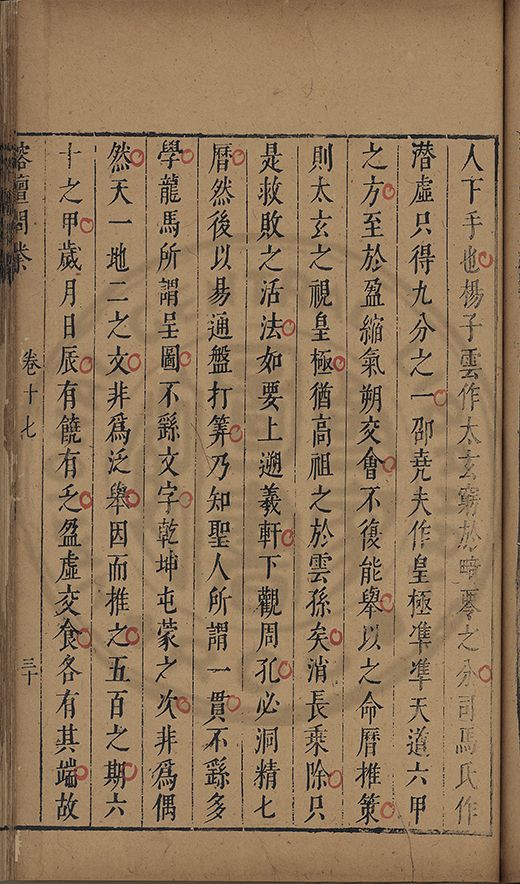 人下手也楊子雲作太玄窮於畸零之分司馬氏作
潛虛只得九分之一邵堯夫作皇極準準天道六甲
之方至於盈縮氣朔交會不復能舉以之命曆推策
則太玄之視皇極猶高祖之於雲孫矣消長乘除只
是救敗之活法如要上遡羲軒下觀周孔必洞精七
曆然後以易通盤打筭乃知聖人所謂一貫不繇多
學龍馬所謂呈圖不繇文字乾坤屯蒙之次非爲偶
然天一地二之文非爲泛舉因而推之五百之期六
十之甲歲月日辰有饒有乏盈虛交食各有其端故
榕壇問業
卷十七
三十